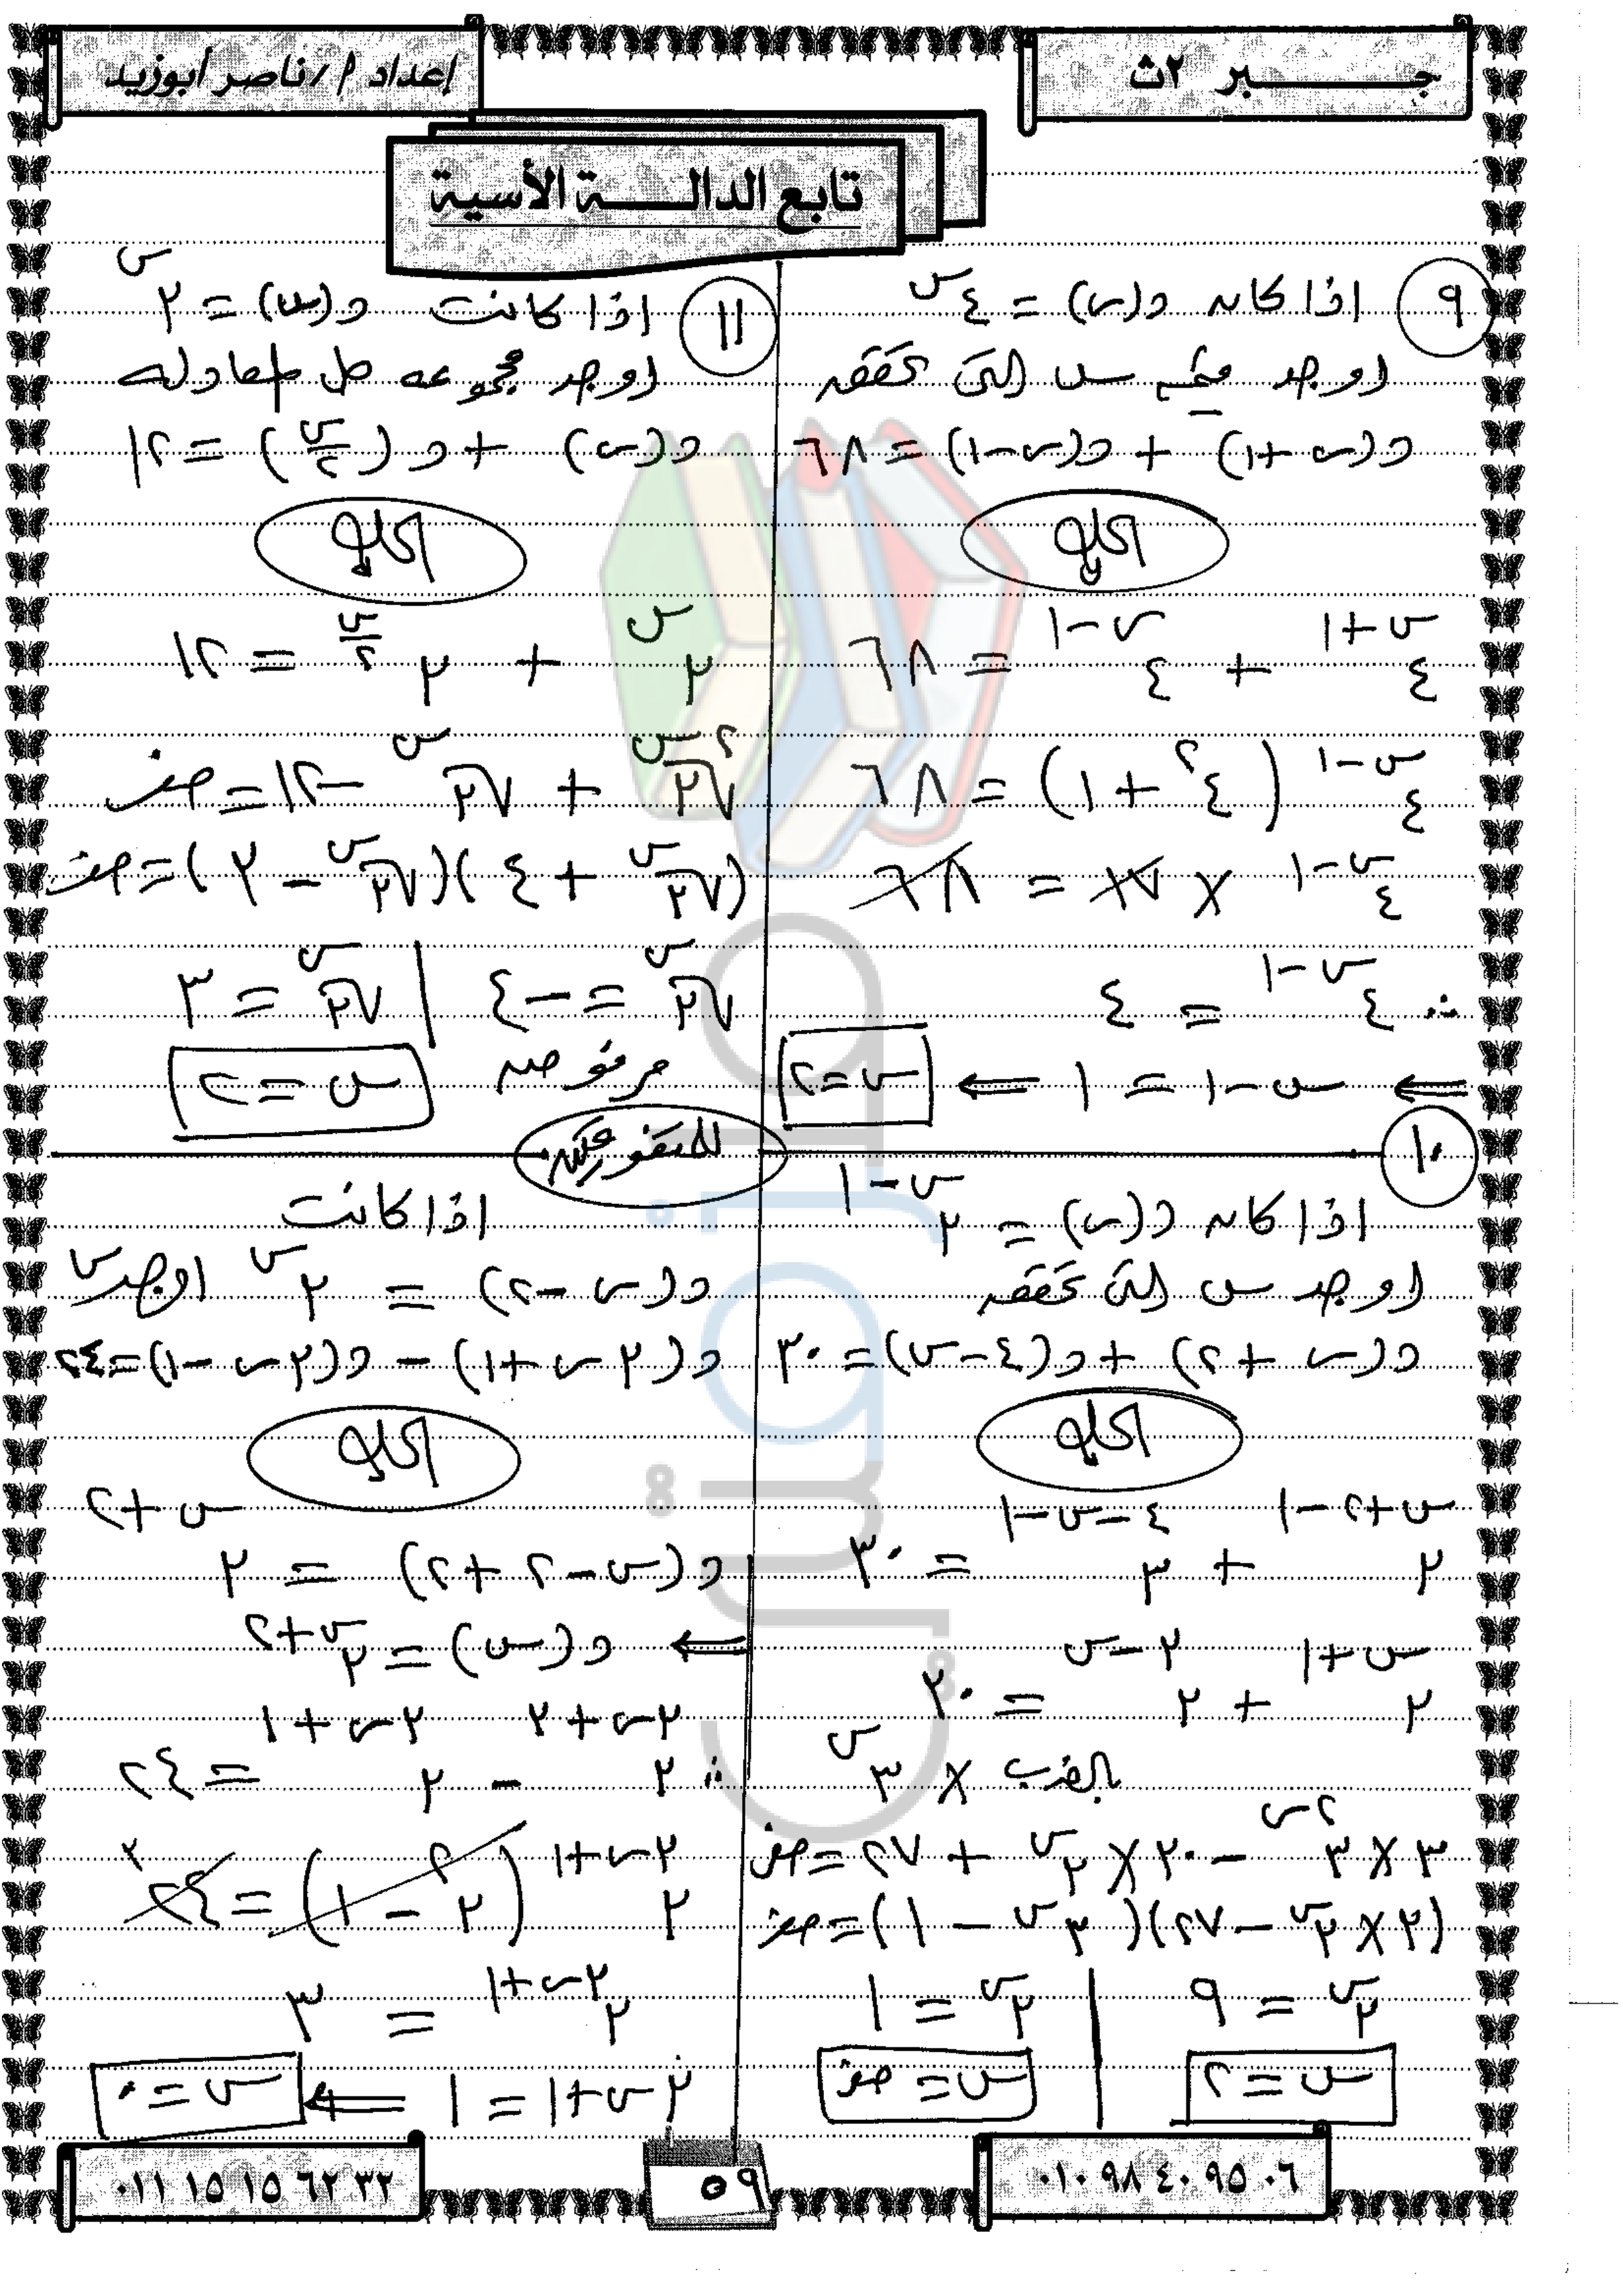 جبر ٢ث
إعداد أ/ ناصر أبوزيد
تابع الدالة الأسية
٩ اذا كان د(س) = ٤^س
اوجد قيمة س التى تحقق
د(س+١) + د(س-١) = ٦٨
الحل
٤^(س+١) + ٤^(س-١) = ٦٨
٤^(س-١) (٤^٢ + ١) = ٦٨
٤^(س-١) × ١٧ = ٦٨
∴ ٤^(س-١) = ٤
⇐ س-١ = ١ ⇐ س=٢
١٠
اذا كان د(س) = ٣^(س-١)
اوجد س التى تحقق
د(س+٢) + د(٤-س) = ٣٠
الحل
٣^(س+٢-١) + ٣^(٤-س-١) = ٣٠
٣^(س+١) + ٣^(٣-س) = ٣٠
بالضرب × ٣^س
٣ × ٣^٢س - ٣٠ × ٣^س + ٢٧ = صفر
(٣ × ٣^س - ٢٧)(٣^س - ١) = صفر
٣^س = ٩ | ٣^س = ١
س = ٢ س = صفر
١١ اذا كانت د(س) = ٣^س
اوجد مجموعه حل المعادله
د(س) + د(س/٢) = ١٢
الحل
٣^س + ٣^(س/٢) = ١٢
√٣^٢س + √٣^س - ١٢ = صفر
(√٣^س + ٤)(√٣^س - ٣) = صفر
√٣^س = -٤ | √٣^س = ٣
مرفوض س = ٢
للمتفوقين
اذا كانت
د(س-٢) = ٣^س اوجد س
د(٢س+١) - د(٢س-١) = ٢٤
الحل
د(س-٢+٢) = ٣^(س+٢)
⇐ د(س) = ٣^(س+٢)
∴ ٣^(٢س+٣) - ٣^(٢س+١) = ٢٤
٣^(٢س+١) (٣^٢ - ١) = ٢٤ ٣
٣^(٢س+١) = ٣
٢س+١ = ١ ⇐ س=٠
٠١٠ ٩٨ ٤٠ ٩٥ ٠٦
٥٩
٠١١ ١٥ ١٥ ٦٢ ٣٢